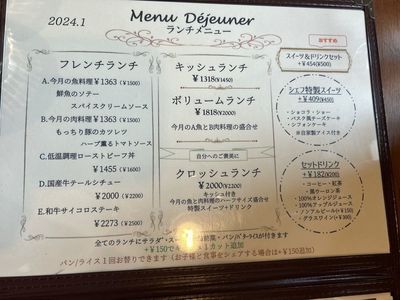 2024.1
Menu Déjeuner
ランチメニュー
フレンチランチ
A.今月の魚料理 ¥1363 (¥1500)
鮮魚のソテー
スパイスクリームソース
B.今月の肉料理 ¥1363 (¥1500)
もっちり豚のカツレツ
ハーブ薫るトマトソース
C.低温調理ローストビーフ丼
¥1455 (¥1600)
D.国産牛テールシチュー
¥2000 (¥2200)
E.和牛サイコロステーキ
¥2273 (¥2500)
キッシュランチ
¥1318(¥1450)
ボリュームランチ
¥1818(¥2000)
今月のA魚とB肉料理の盛合せ
自分へのご褒美に
クロッシュランチ
¥2000(¥2200)
キッシュ付き
今月の魚と肉料理のハーフサイズ盛合せ
特製スイーツ+ドリンク
おすすめ
スイーツ&ドリンクセット
+¥454(¥500)
シェフ特製スイーツ
+¥409(¥450)
・ショコラ・ショー
・バスク風チーズケーキ
・シフォンケーキ
※自家製アイス付き
セットドリンク
+¥182(¥200)
・コーヒー・紅茶
・黒ウーロン茶
・100%オレンジジュース
・100%アップルジュース
・ノンアルビール(+¥150)
・グラスワイン(+¥300)
全てのランチにサラダ・スー 前菜・パン/バター/ライスが付きます
+¥150で カット追加
パン/ライス1回お替りできます (お子様と食事をシェアする場合は+¥150追加)